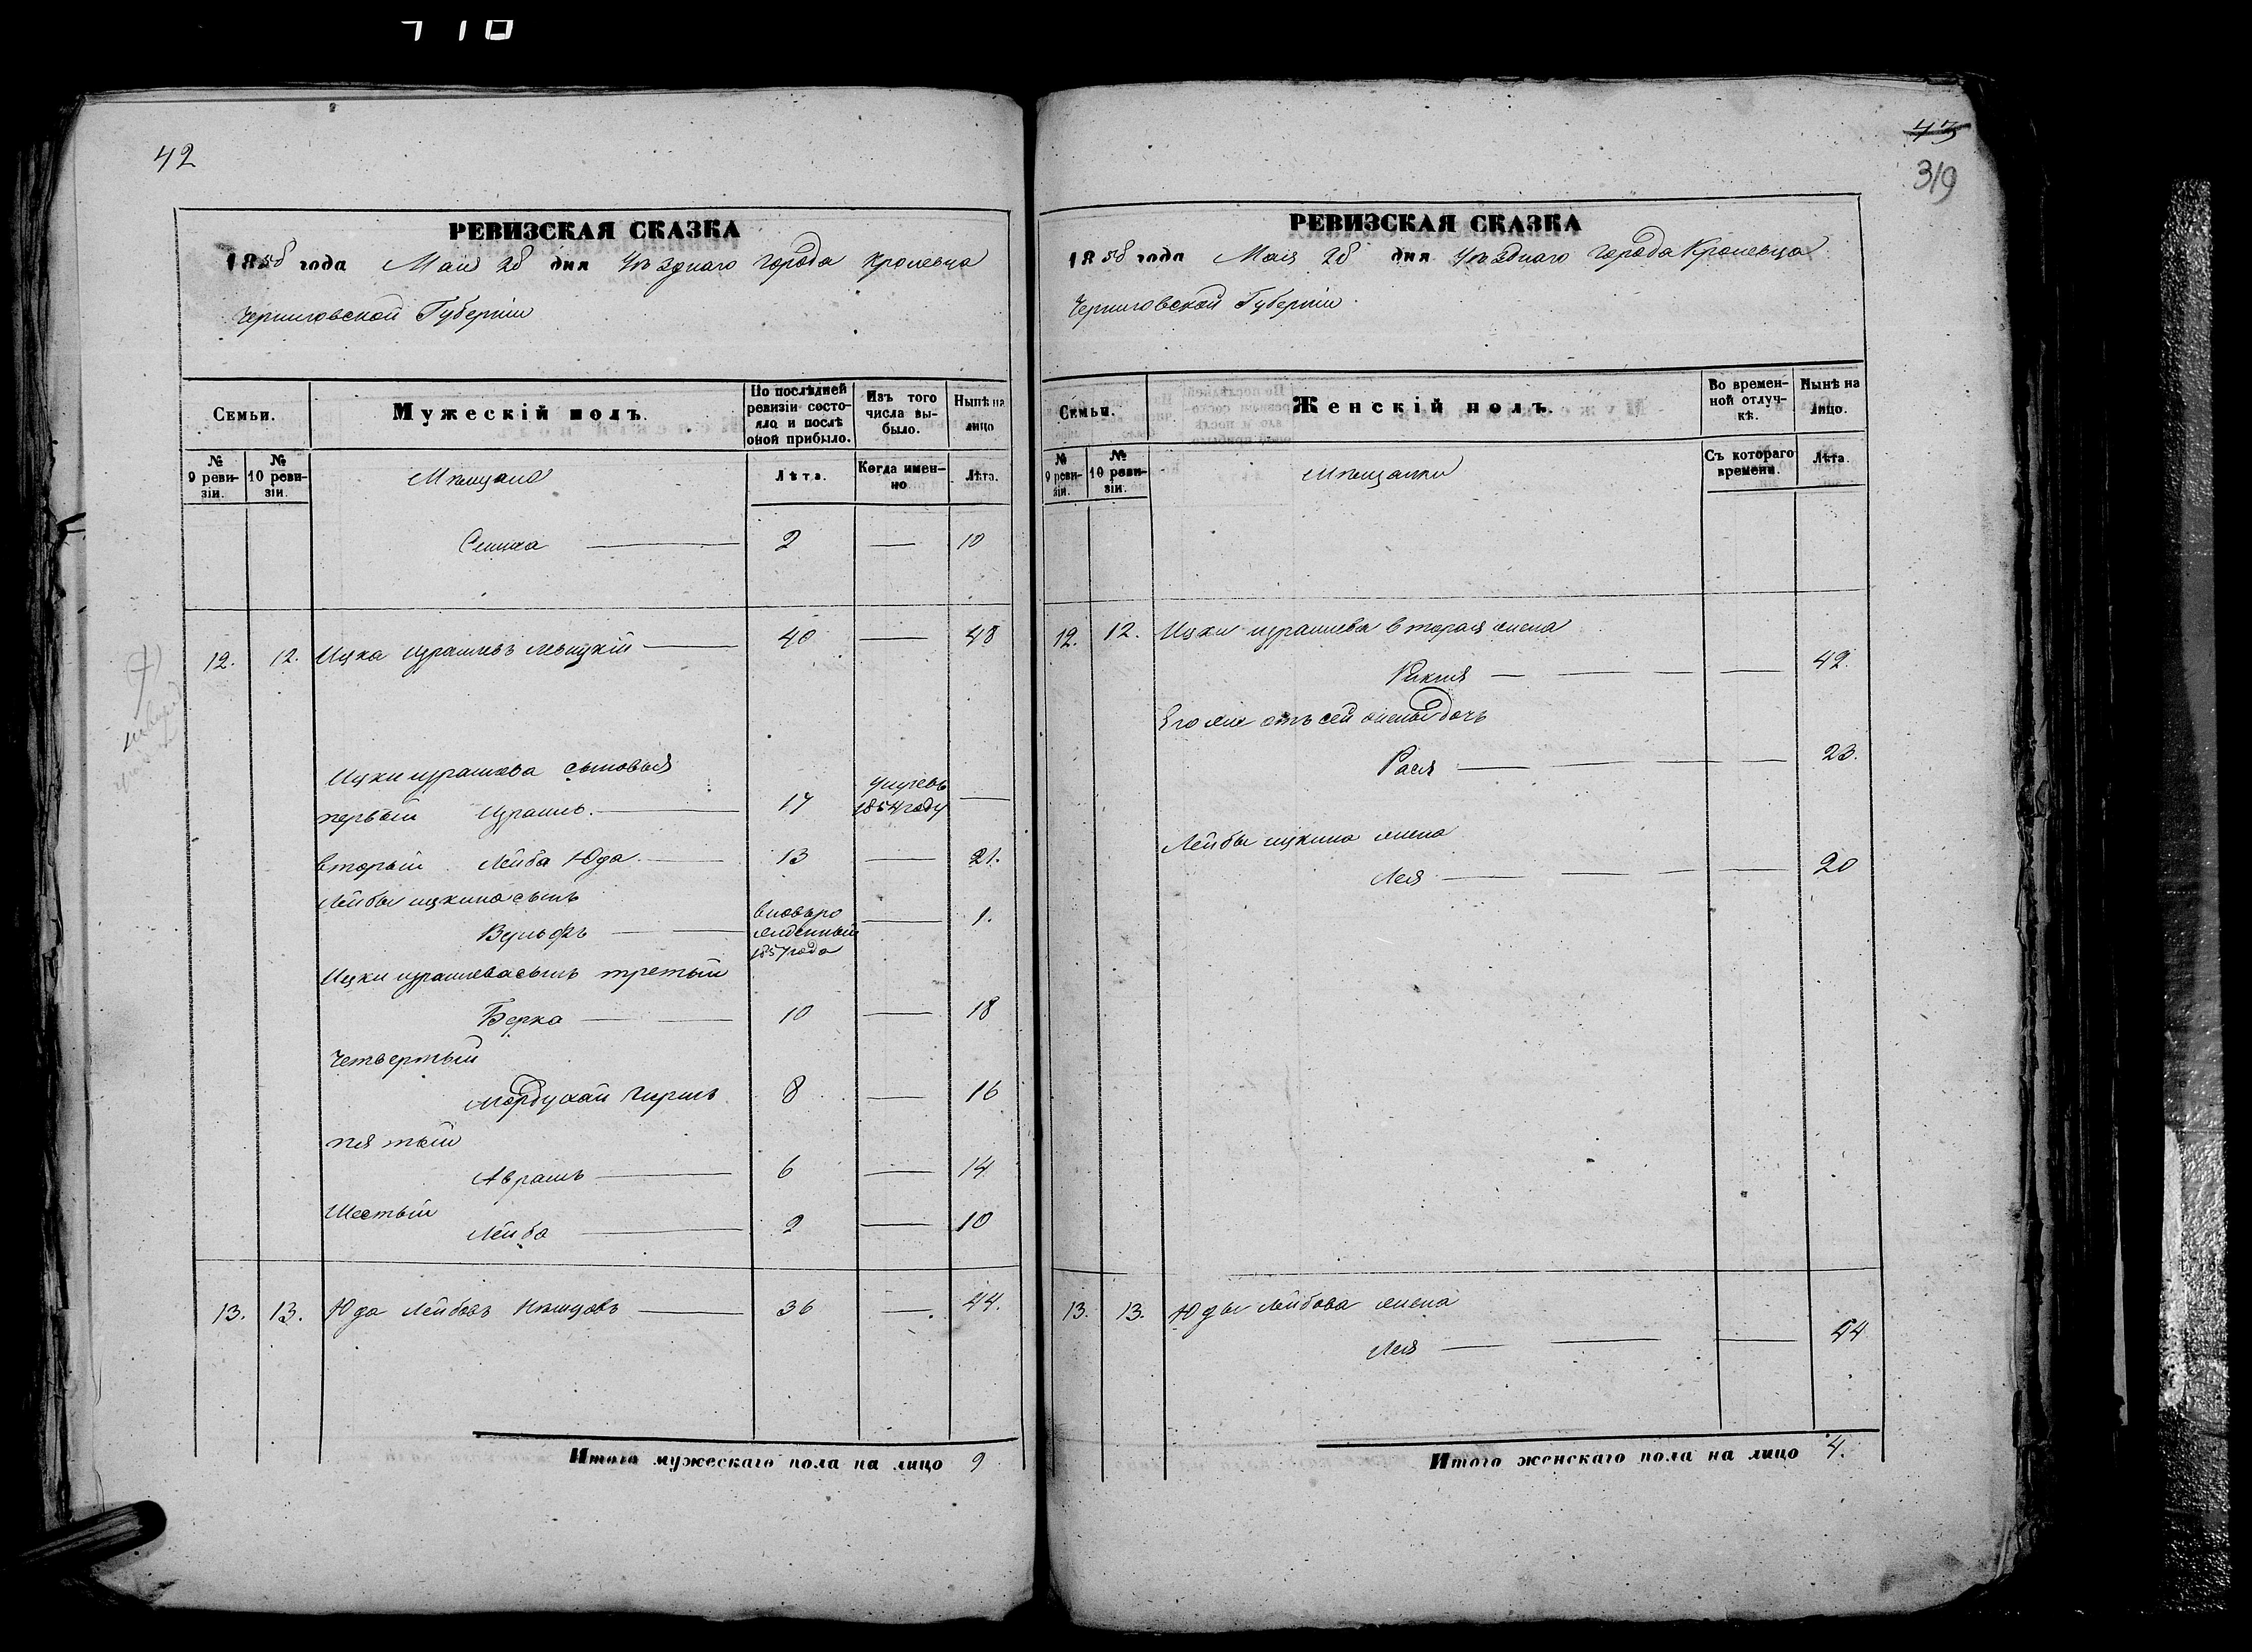 42
РЕВИЗСКАЯ СКАЗКА
1858 года Мая 28 дня Уѣзднаго города Кролевца
Черниговской Губерніи
Семьи.
Мужескій полъ.
По послѣдней ревизіи состояло и послѣ оной прибыло.
Изъ того числа выбыло.
Нынѣ на лицо
№ 9 ревизіи.
№ 10 ревизіи.
Мѣщане
Лѣта.
Когда именно
Лѣта.
2 — 10
12. 12. Ицка Израилевъ Левицкій — 40 — 48
Ицки Израилева сыновья
первый Израиль. — 17 умеръ 1854 году —
вторый Лейба Юда — 13 — 21.
Лейбы Ицкина сынъ
Вульфъ — вновьрожденный 1857 года — 1.
Ицки Израилева сынъ третьій
Берка — 10 — 18
Четвертый
Мордухай Гиршъ 8 — 16
пятый
Абрамъ — 6 — 14
Шестый
Лейба — 2 — 10
13. 13. Юда Лейбовъ — 36 — 44.
Итого мужескаго пола на лицо 9
43
319
РЕВИЗСКАЯ СКАЗКА
1858 года Мая 28 дня Уѣзднаго города Кролевца
Черниговской Губерніи
Семьи.
Женскій полъ.
Во временной отлучкѣ.
Нынѣ на лицо.
№ 9 ревизіи.
№ 10 ревизіи.
Мѣщанки
Съ котораго времени.
Лѣта.
12. 12. Ицки Израилева вторая жена
— — — — 42.
Его же отъ сей жены дочь
Рася — — — — 23.
Лейбы Ицкина жена
Лея — — — — 20
13. 13. Юды Лейбова жена
Лея — — — 44
Итого женскаго пола на лицо 4.